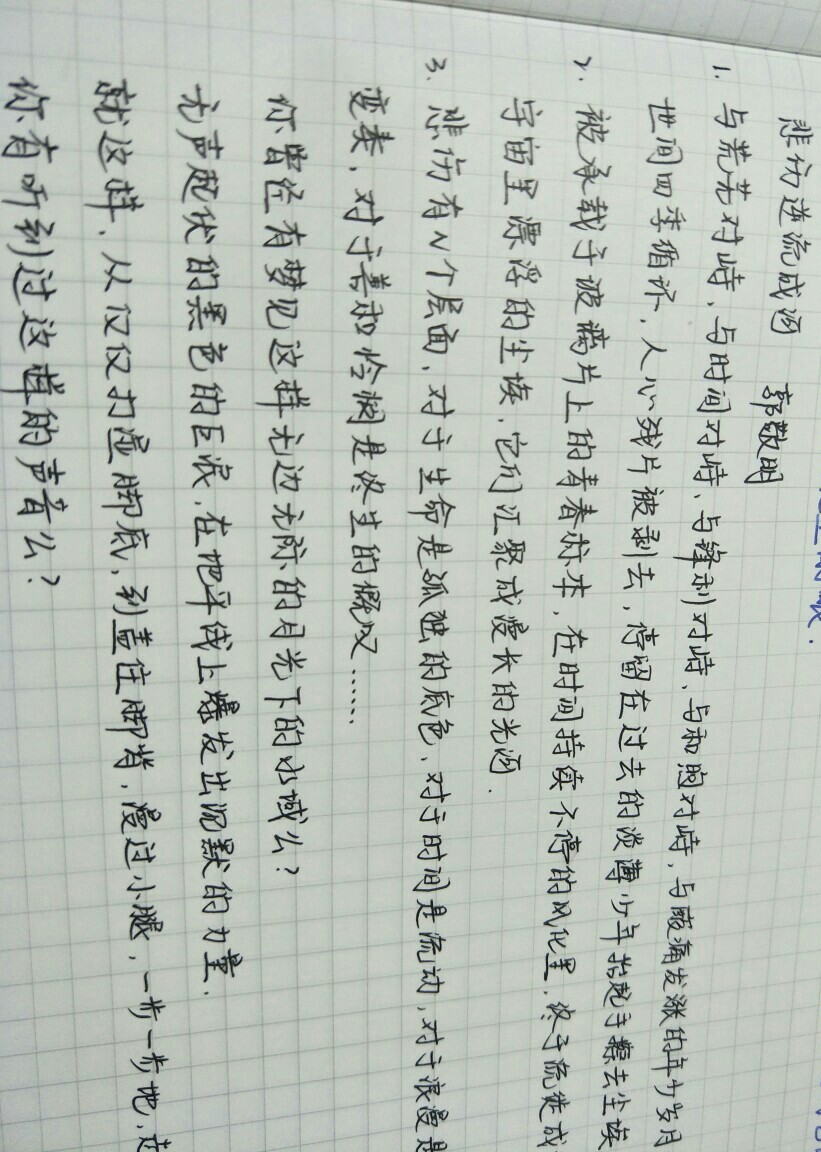 悲伤逆流成河 郭敬明
1. 与荒芜对峙、与时间对峙、与锋利对峙、与和煦对峙、与酸痛发涨的年少岁月
世间四季循环,人心残片被剥去,停留在过去的淡薄少年抬起手擦去尘埃
2. 被承载于玻璃片上的青春标本,在时间持续不停的风化里,终于流徙成
宇宙里漂浮的尘埃,它们汇聚成漫长的光河.
3. 悲伤有N个层面,对于生命是孤独的底色,对于时间是流动,对于浪漫是
变奏,对于善和怜悯是终生的慨叹……
你曾经有梦见这样无边无际的月光下的水域么?
无声起伏的黑色的巨浪,在地平线上爆发出沉默的力量.
就这样,从仅仅打湿脚底,到盖住脚背,漫过小腿,一步一步地,走
你有听到过这样的声音么?